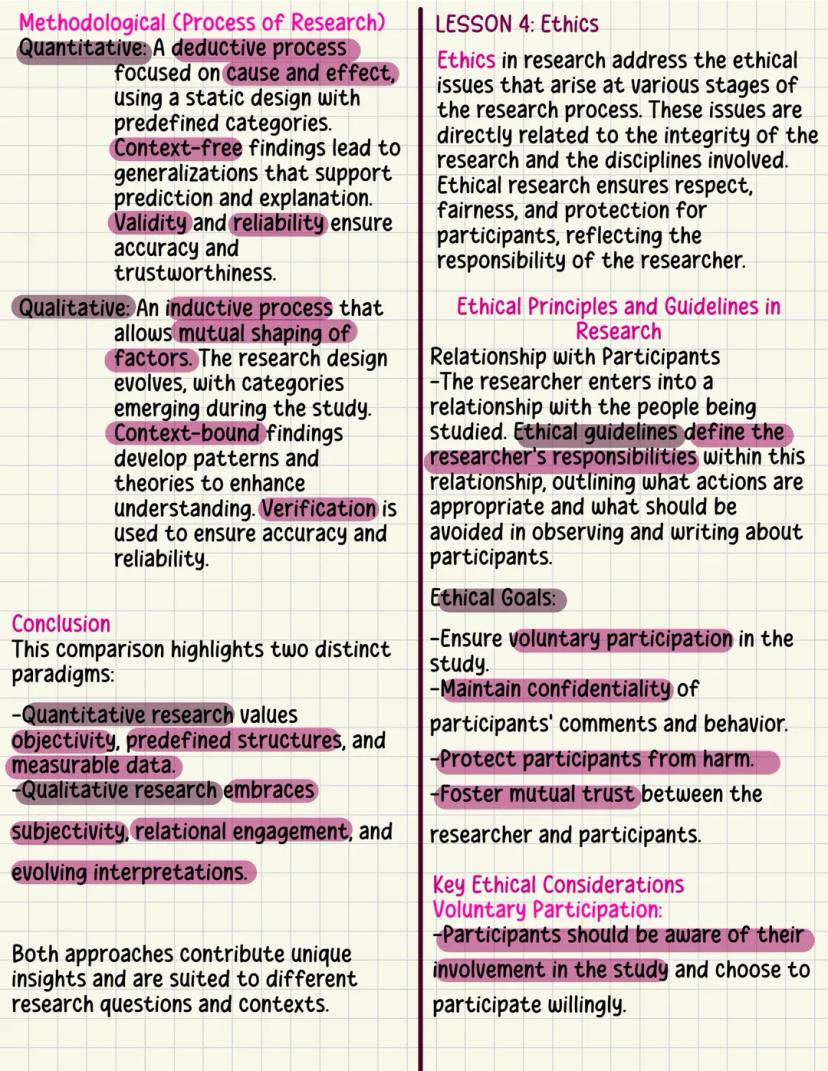 Methodological (Process of Research)
Quantitative: A deductive process
focused on cause and effect,
using a static design with
predefined categories.
Context-free findings lead to
generalizations that support
prediction and explanation.
Validity and reliability ensure
accuracy and
trustworthiness.
Qualitative: An inductive process that
allows mutual shaping of
factors. The research design
evolves, with categories
emerging during the study.
Context-bound findings
develop patterns and
theories to enhance
understanding. Verification is
used to ensure accuracy and
reliability.
Conclusion
This comparison highlights two distinct
paradigms:
-Quantitative research values
objectivity, predefined structures, and
measurable data.
-Qualitative research embraces
subjectivity, relational engagement, and
evolving interpretations.
Both approaches contribute unique
insights and are suited to different
research questions and contexts.
LESSON 4: Ethics
Ethics in research address the ethical
issues that arise at various stages of
the research process. These issues are
directly related to the integrity of the
research and the disciplines involved.
Ethical research ensures respect,
fairness, and protection for
participants, reflecting the
responsibility of the researcher.
Ethical Principles and Guidelines in
Research
Relationship with Participants
-The researcher enters into a
relationship with the people being
studied. Ethical guidelines define the
researcher's responsibilities within this
relationship, outlining what actions are
appropriate and what should be
avoided in observing and writing about
participants.
Ethical Goals:
-Ensure voluntary participation in the
study.
-Maintain confidentiality of
participants' comments and behavior.
-Protect participants from harm.
-Foster mutual trust between the
researcher and participants.
Key Ethical Considerations
Voluntary Participation:
-Participants should be aware of their
involvement in the study and choose to
participate willingly.